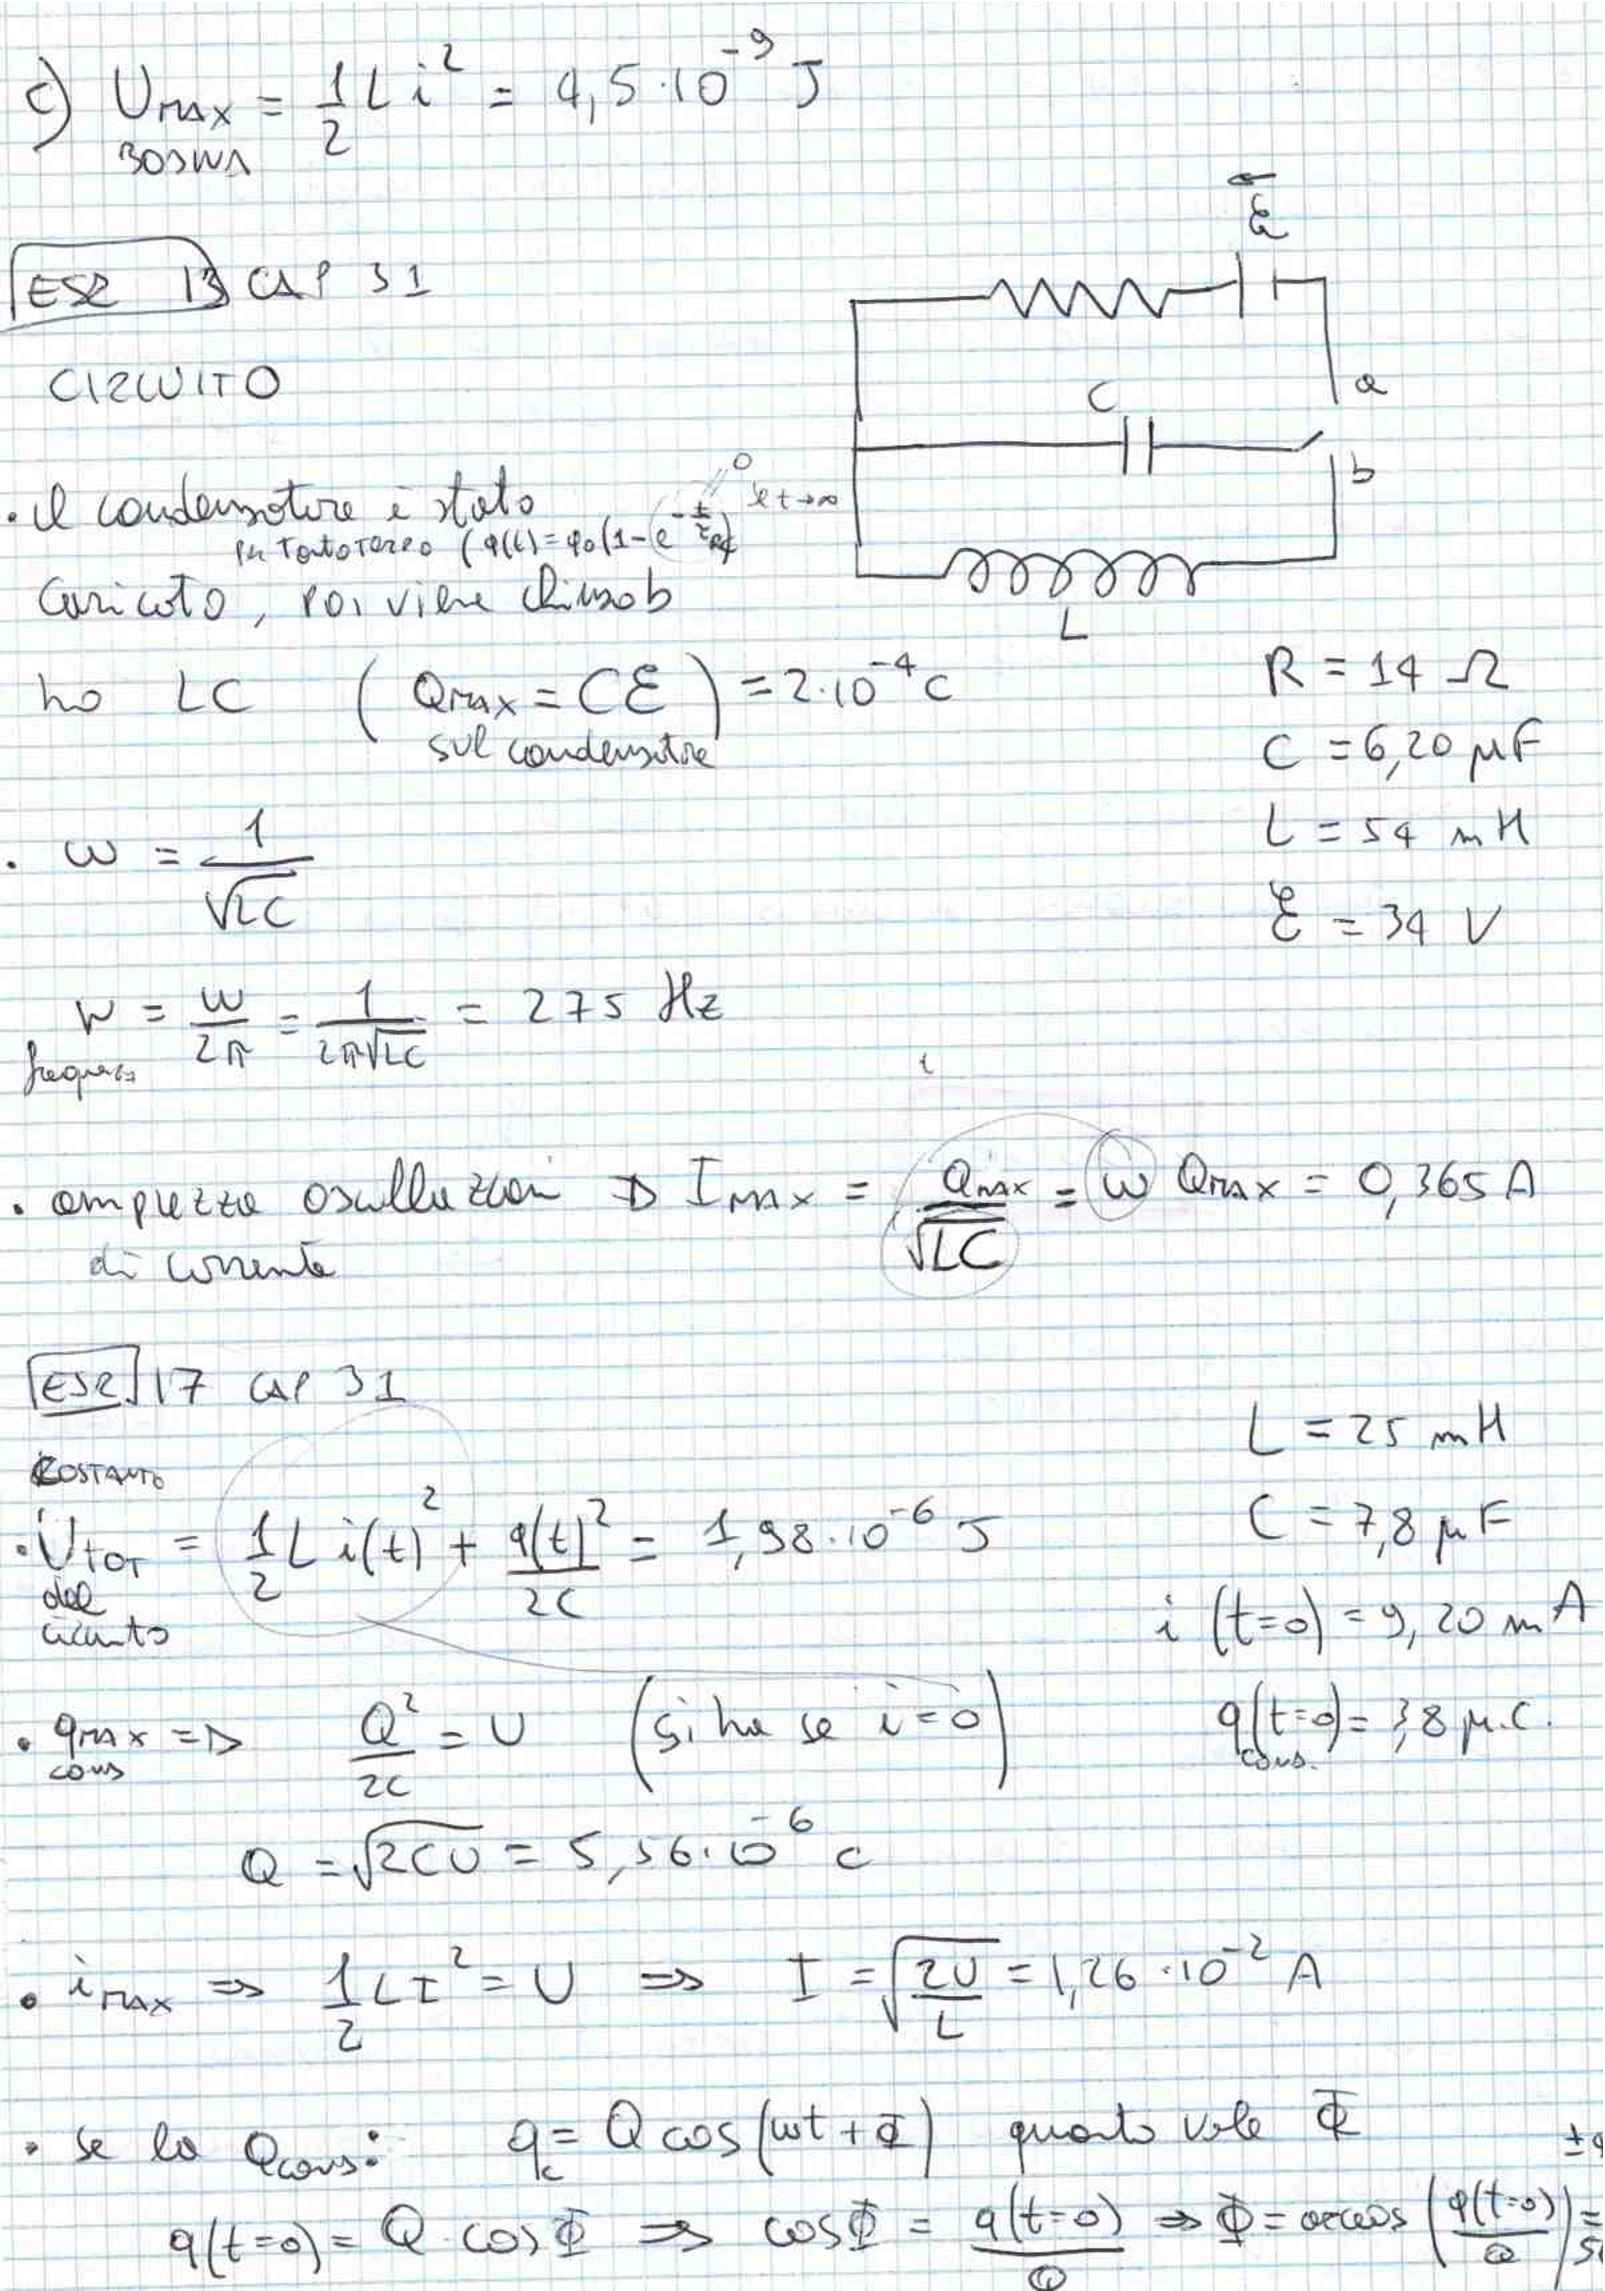 c) U_MAX = 1/2 L i² = 4,5·10⁻⁹ J
BOBINA
ESR 13 CAP 31
ℰ
CIRCUITO
a
C
b
L
• il condensatore è stato
per tanto tempo (q(t) = q₀(1 - e^(-t/τ_RC)) 0 se t→∞
caricato, poi viene chiuso b
ho LC (Q_MAX = Cℰ) = 2·10⁻⁴ C
sul condensatore
R = 14 Ω
C = 6,20 μF
L = 54 mH
ℰ = 34 V
• ω = 1/√LC
ν = ω/2π = 1/2π√LC = 275 Hz
• ampiezza oscillazioni ⇒ I_MAX = Q_MAX/√LC = ω Q_MAX = 0,365 A
di corrente
ESR 17 CAP 31
L = 25 mH
C = 7,8 μF
i (t=0) = 9,20 mA
q(t=0) = 3,8 μC.
cons.
COSTANTE
• U_TOT = 1/2 L i(t)² + q(t)²/2C = 1,98·10⁻⁶ J
del
circuito
• q_MAX ⇒ Q²/2C = U (si ha se i=0)
cons
Q = √2CU = 5,56·10⁻⁶ C
• i_MAX ⇒ 1/2 L I² = U ⇒ I = √2U/L = 1,26·10⁻² A
• se la Q_cons: q_c = Q cos(ωt + Φ) quanto vale Φ
q(t=0) = Q · cosΦ ⇒ cosΦ = q(t=0)/Q ⇒ Φ = arccos (q(t=0)/Q) =